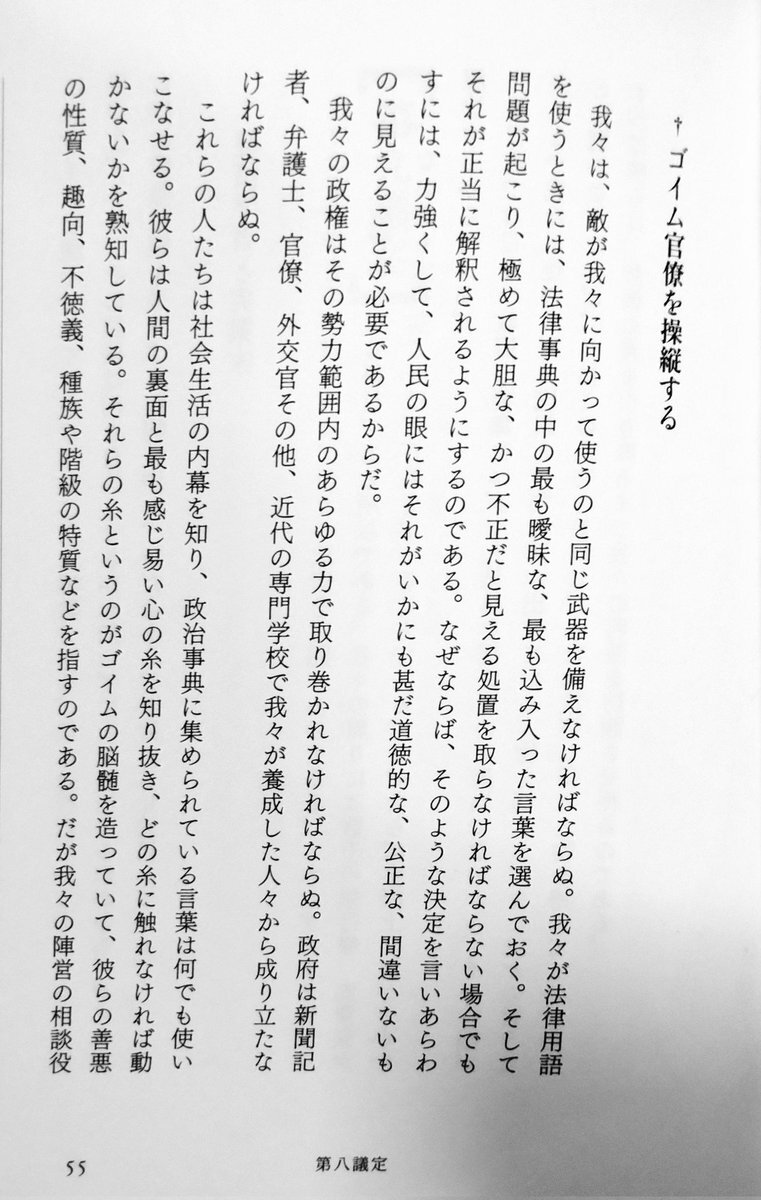 † ゴイム官僚を操縦する
我々は、敵が我々に向かって使うのと同じ武器を備えなければならぬ。我々が法律用語
を使うときには、法律事典の中の最も曖昧な、最も込み入った言葉を選んでおく。そして
問題が起こり、極めて大胆な、かつ不正だと見える処置を取らなければならない場合でも
それが正当に解釈されるようにするのである。なぜならば、そのような決定を言いあらわ
すには、力強くして、人民の眼にはそれがいかにも甚だ道徳的な、公正な、間違いないも
のに見えることが必要であるからだ。
我々の政権はその勢力範囲内のあらゆる力で取り巻かれなければならぬ。政府は新聞記
者、弁護士、官僚、外交官その他、近代の専門学校で我々が養成した人々から成り立たな
ければならぬ。
これらの人たちは社会生活の内幕を知り、政治事典に集められている言葉は何でも使い
こなせる。彼らは人間の裏面と最も感じ易い心の糸を知り抜き、どの糸に触れなければ動
かないかを熟知している。それらの糸というのがゴイムの脳髄を造っていて、彼らの善悪
の性質、趣向、不徳義、種族や階級の特質などを指すのである。だが我々の陣営の相談役
55
第八議定